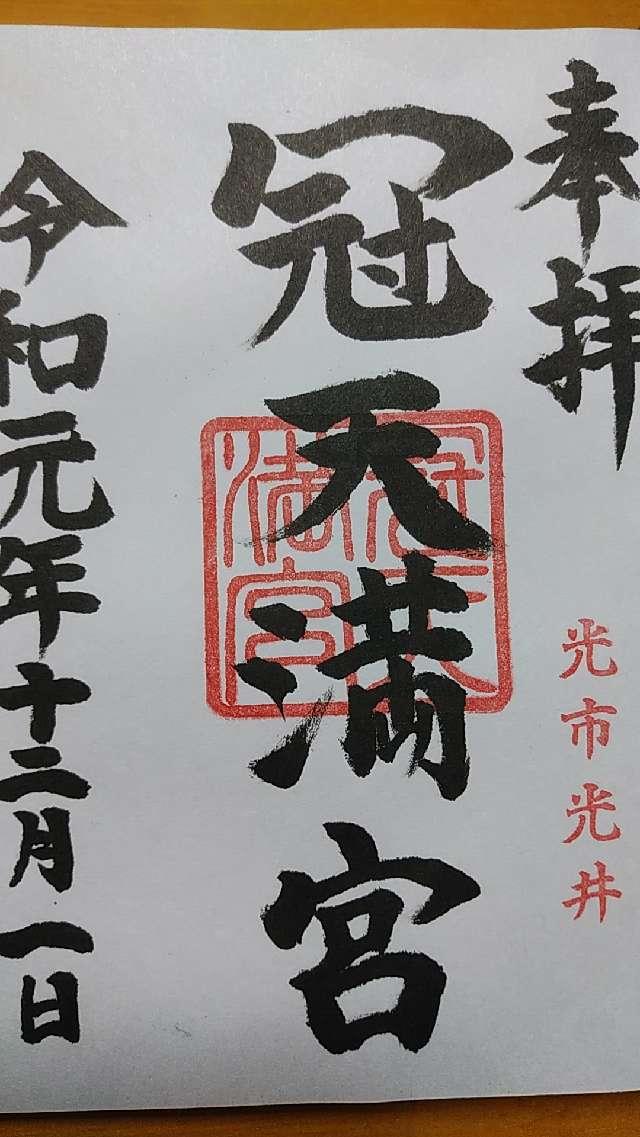 奉拝
光市光井
冠天満宮
令和元年十二月一日